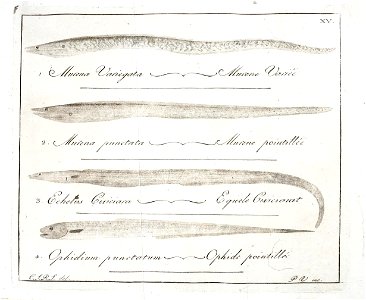 XV.
1. Murena Variegata Murene Variée
2. Murena punctata Murene pointillée
3. Echelus Ciuciara Equele
4. Ophidium punctatum Ophide pointillé
del.